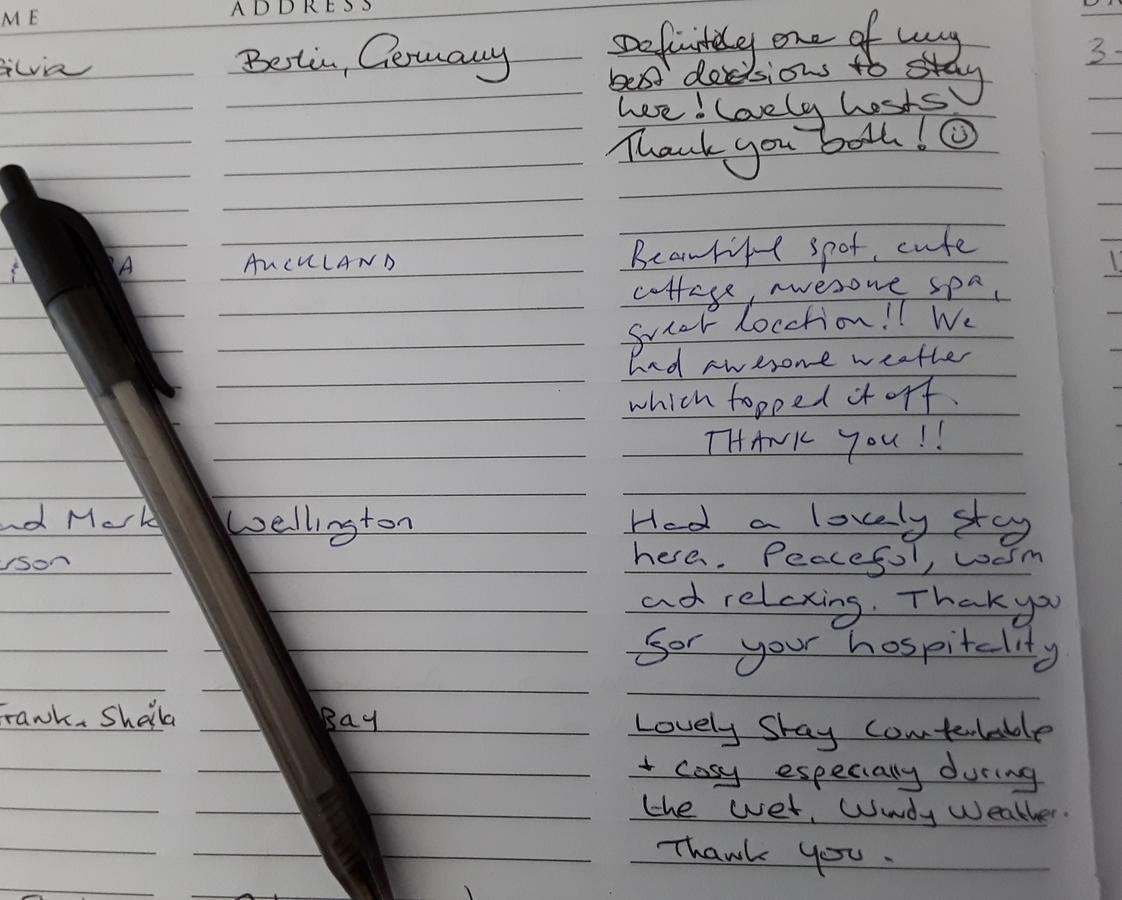 ME ADDRESS
Silvia Berlin, Germany Definitely one of my
best decisions to stay
here! Lovely hosts!
Thank you both! ☺
3-
AUCKLAND Beautiful spot, cute
cottage, awesome spa,
great location!! We
had awesome weather
which topped it off.
THANK YOU!!
nd Mark Wellington Had a lovely stay
rson here. Peaceful, warm
and relaxing. Thankyou
for your hospitality
Frank & Sheila Bay Lovely Stay Comfortable
+ cosy especially during
the wet, Windy Weather.
Thank you.